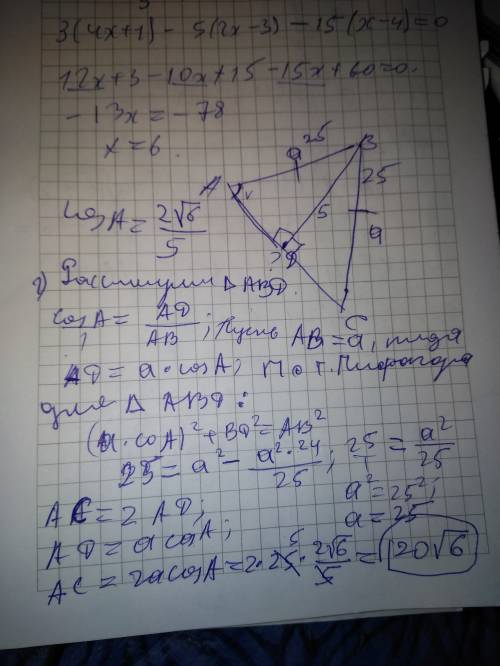 3(4x+1) - 5(2x-3) - 15(x-4)=0
12x+3-10x+15-15x+60=0.
-13x = -78
x = 6.
A
a 25
B
25
5
D
a
C
cos A = 2√6/5
2) Рассмотрим △ABD.
cos A = AD/AB; Пусть AB = a, тогда
AD = a·cosA; По т. Пифагора
для △ ABD:
(a·cosA)² + BD² = AB²
25 = a² - a²·24/25; 25/1 = a²/25
a² = 25²;
a = 25
AC = 2 AD;
AD = a cosA;
AC = 2a cosA = 2·25·2√6/5 = 20√6